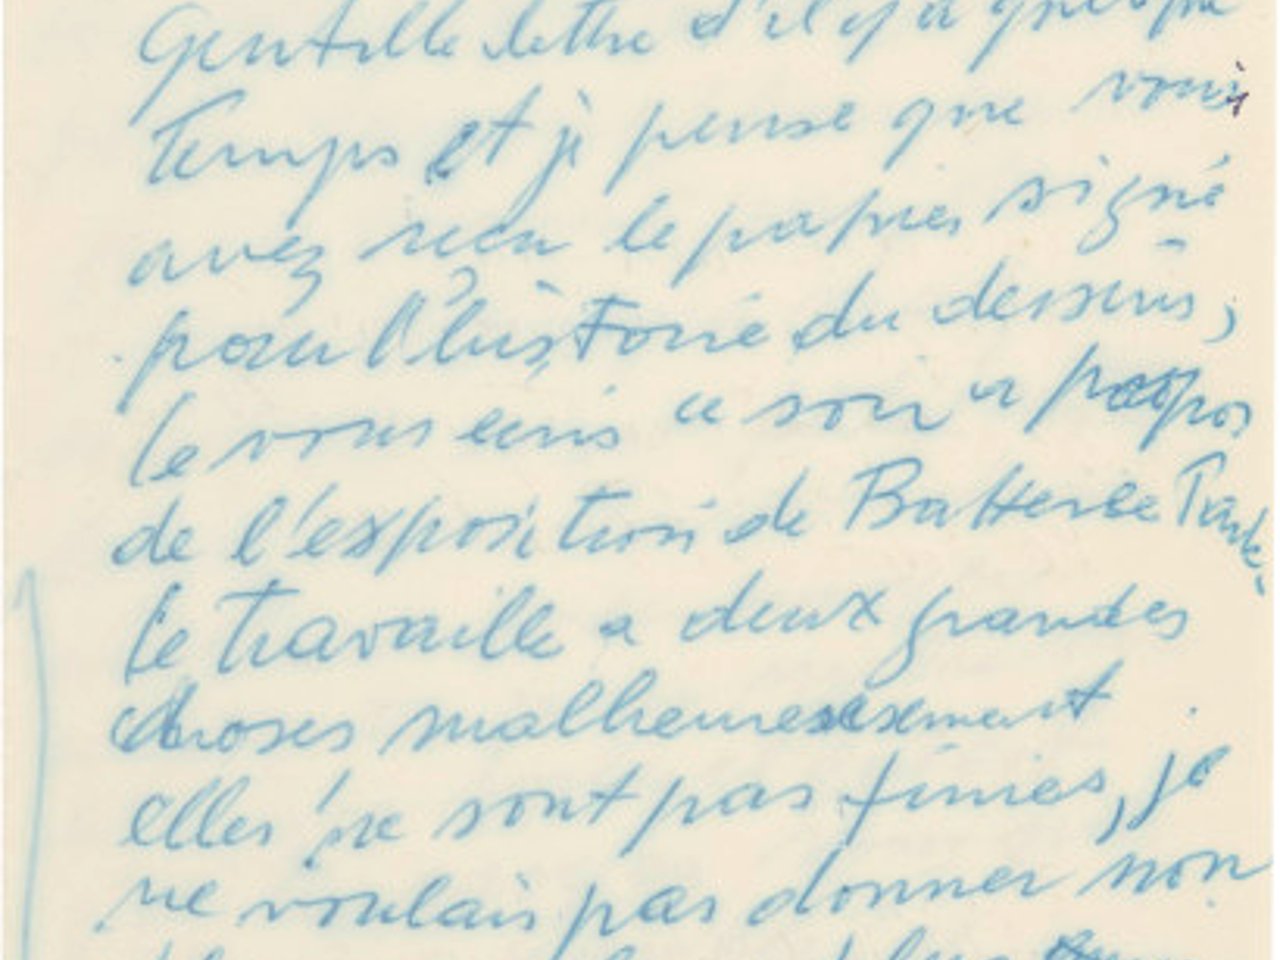 Gentille lettre d'il y a quelque
Temps et je pense que vous
avez recu le papier signé
pour l'histoire du dessins,
Je vous ecris ce soir a propos
de l'exposition de Battersee Park.
Je travaille a deux grandes
choses malheureusement
elles ne sont pas finies, je
ne voulais pas donner non
plus